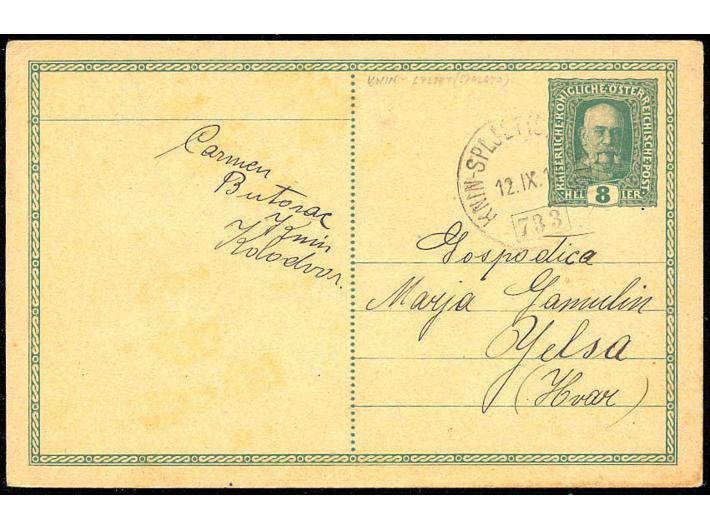 KNIN - SPLJET (SPALATO)
KAISERLICHE·KÖNIGLICHE·ÖSTERREICHISCHE·POST
HELLER
8
KNIN-SPLJET
12.IX.1
733
Carmen
Butorac
Knin
Kolodvor.
Gospodica
Marja Gamulin
Yelsa
(Hvar)